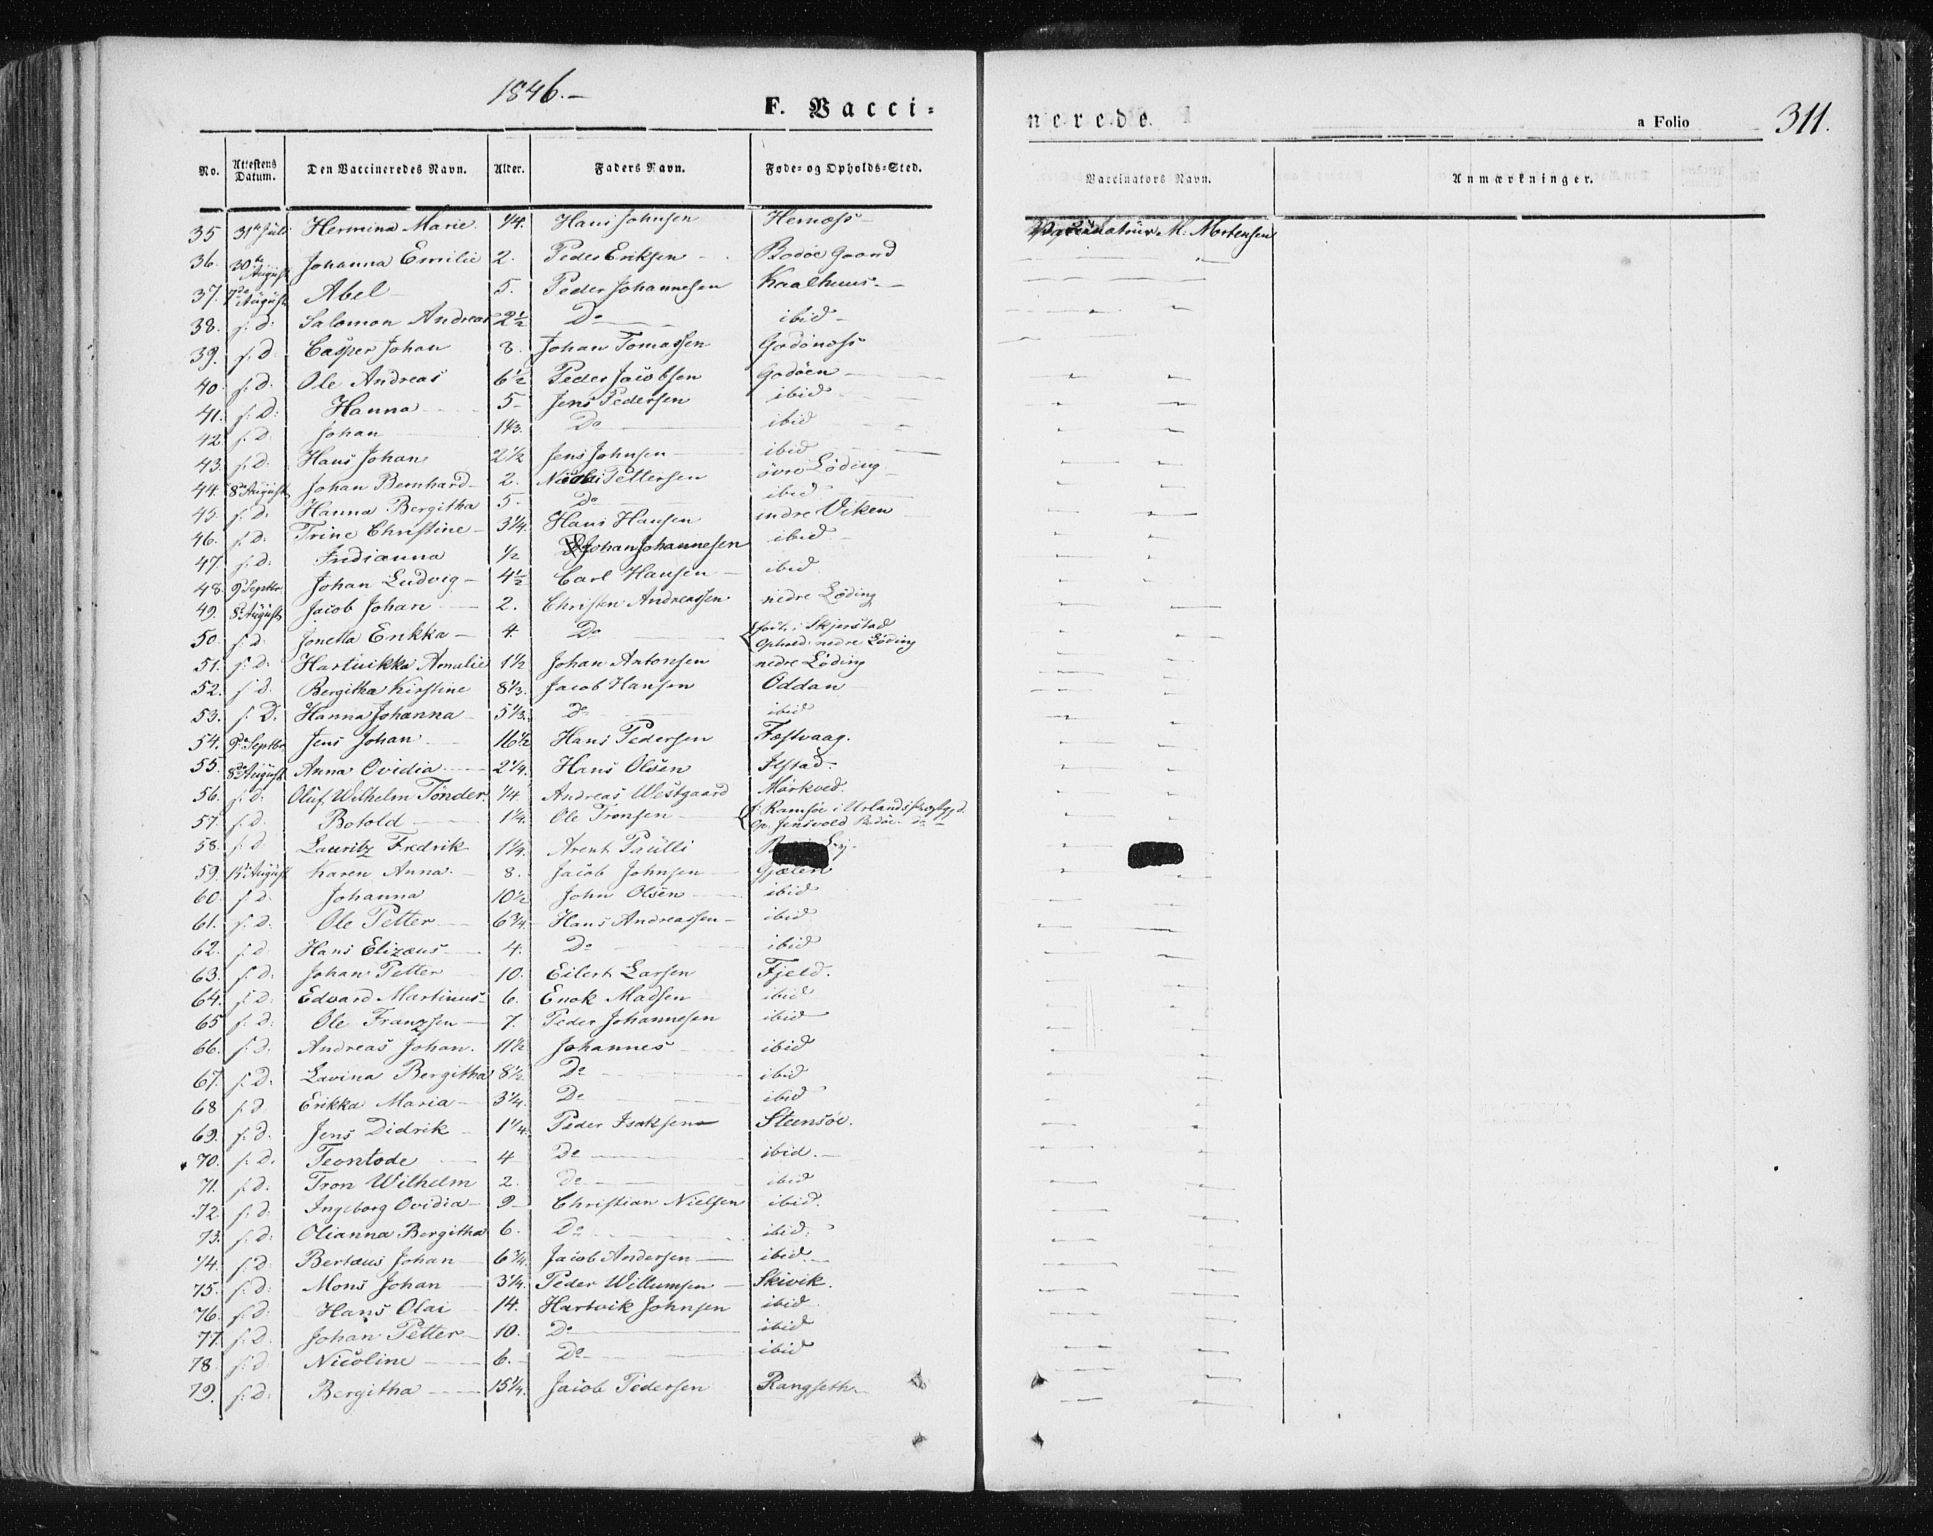 1846.-
F. Vacci=
nerede.
a Folio
311.
No. | Attestens Datum. | Den Vaccineredes Navn. | Alder. | Faders Navn. | Føde= og Opholds=Sted. | Vaccinators Navn. | Anmærkninger.
35 31te Juli Hermina Marie 1/4. Hans Johnsen Hernæss Vaccinateur M. Mortensen
36. 30te August Johanna Emilie 2. Peder Eriksen Bodøe Gaard
37. 7de August Abel 5. Peder Johannesen Kaalhuus
38. s. d. Salomon Andreas 2 1/2 Do ibid
39. s. d. Casper Johan 8. Johan Tomassen Godönæss
40. s. d. Ole Andreas 6 1/2 Peder Jacobsen Godöen
41. s. d. Hanna 5 Jens Pedersen ibid
42. s. d. Johan 1 1/3. Do ibid
43. s. d. Hans Johan 2 1/2 Jens Johnsen ibid
44. 8de August Johan Bernhard 2. Nicolai Pettersen övre Löding
45. s. d. Hanna Bergitha 5. Do ibid
46. s. d. Trine Christine 3 1/4. Hans Hansen indre Viken
47. s. d. Indianna 1/2 Johan Johannesen ibid
48. 9 Septbr. Johan Ludvig 4 1/2 Carl Hansen ibid
49. 8de August Jacob Johan 2. Christen Andreassen nedre Löding
50. s. d. Jonetta Erikka 4. Do födt i Skjerstad
Ophold: nedre Löding
51. s. d. Hartvikka Amalie 1 1/2 Johan Antonsen nedre Löding
52. s. d. Bergitha Kirstine 8 1/3. Jacob Hansen Oddan
53. s. d. Hanna Johanna 5 1/3. Do ibid
54. 9de Septbr. Jens Johan 16 1/2 Hans Pedersen Fæstvaag.
55. 8de August Anna Ovidia 2 1/4. Hans Olsen Ilstad.
56. s. d. Oluf Wilhelm Tönder. 1/4. Andreas Westgaard Mörkved.
57. s. d. Botold 1 1/4. Ole Tronsen f. Ramsöe i Urlands
Op. Jensvold Bodöe do
58. s. d. Lauritz Fredrik 1 1/4. Arent Paulli
59. August Karen Anna. 8. Jacob Johnsen Gjælen
60. s. d. Johanna 10 1/2 John Olsen ibid
61. s. d. Ole Petter 6 3/4. Hans Andreassen ibid
62. s. d. Hans Elizæus 4. Do ibid
63. s. d. Johan Petter 10. Eilert Larsen Fjeld.
64. s. d. Edvard Martinus 6. Enok Madsen ibid
65 s. d. Ole Franzsen 7. Peder Johannesen ibid
66. s. d. Andreas Johan. 11 1/2 Johannes ibid
67. s. d. Lavina Bergitha 8 1/2. Do ibid
68 s. d. Erikka Maria 3 1/4. Do ibid
69. s. d. Jens Didrik 1 1/4. Peder Isaksen Steensöe.
70. s. d. Teontode 4 Do ibid.
71. s. d. Tron Wilhelm 2. Do ibid
72. s. d. Ingeborg Ovidia 9 Christian Nielsen ibid.
73. s. d. Olianna Bergitha 6. Do ibid.
74. s. d. Bertæus Johan 6 3/4. Jacob Andersen ibid.
75. s. d. Mons Johan 3 1/4. Peder Willumsen Skivik.
76. s. d. Hans Olai 14. Hartvik Johnsen ibid
77. s. d. Johan Petter 10. Do ibid
78. s. d. Nicoline 6. Do ibid
79. s. d. Bergitha 15 1/4. Jacob Pedersen Rangseth